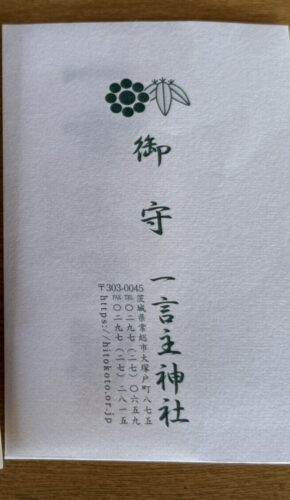 御守
一言主神社
〒303-0045
茨城県常総市大塚戸町八七五
TEL〇二九七(二七)〇六五九
FAX〇二九七(二七)二八一五
https://hitokoto.or.jp